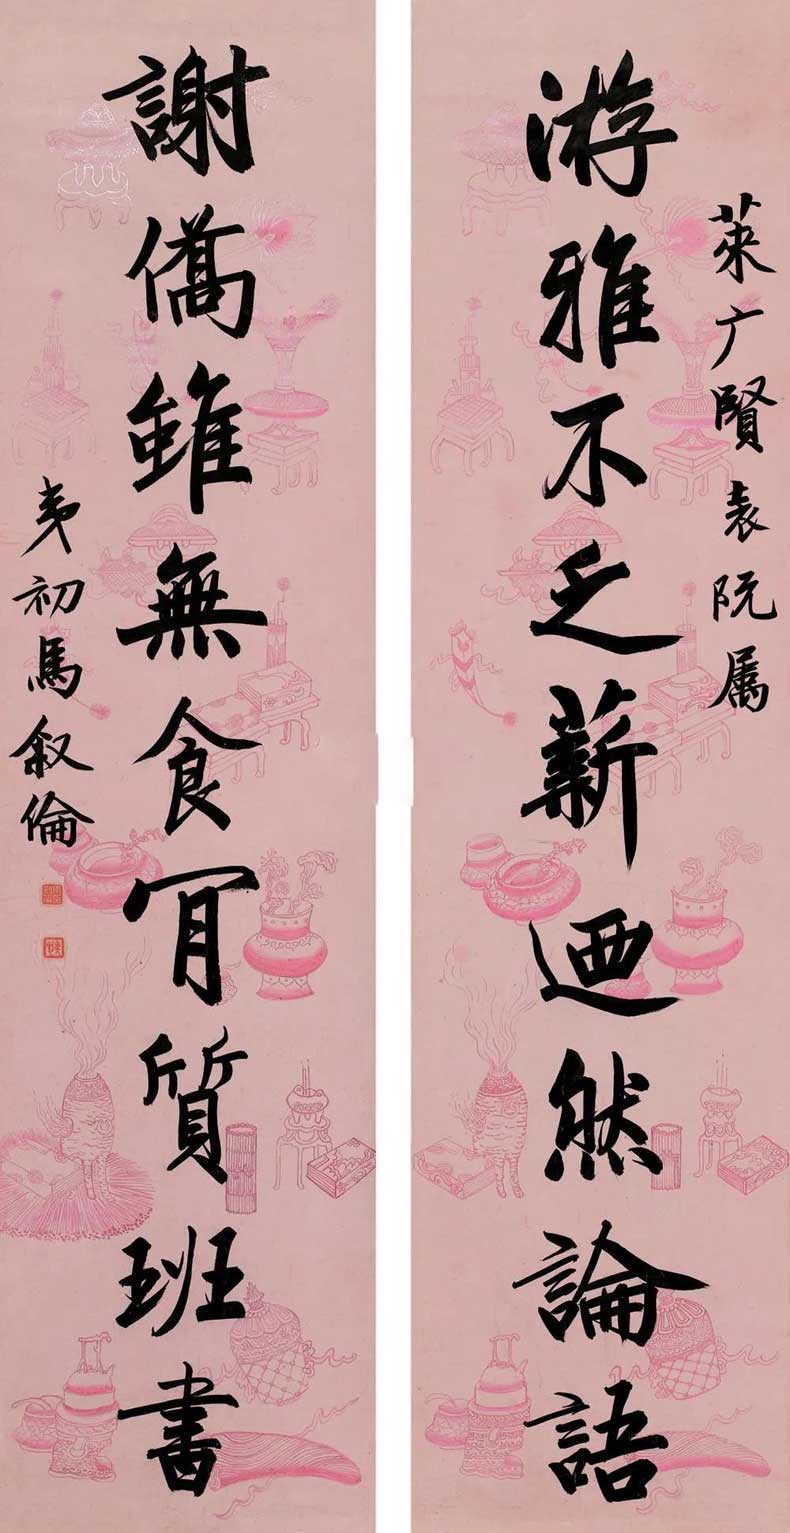 萊广賢表阮属
游雅不乏薪迺然論語
謝僑雖無食肎質班書
夷初馬叙倫